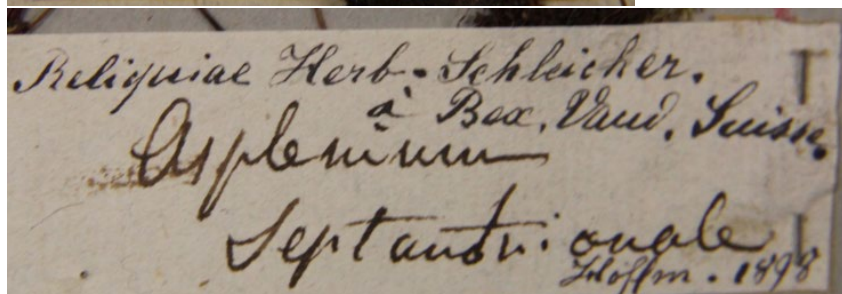 Reliquiae Herb. Schleicher.
à Bex, Vaud, Suisse.
Asplenium
Septantrionale
Hoffm. 1898